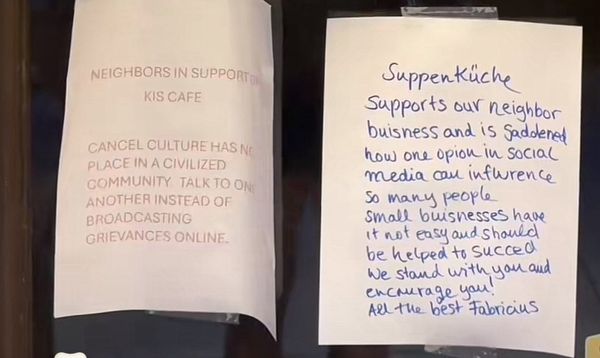 NEIGHBORS IN SUPPORT
KIS CAFE
CANCEL CULTURE HAS
PLACE IN A CIVILIZED
COMMUNITY. TALK TO
ANOTHER INSTEAD OF
BROADCASTING
GRIEVANCES ONLINE.
Suppenküche
Supports our neighbor
buisness and is saddened
how one opion in social
media can influrence
so many people
small buisnesses have
it not easy and should
be helped to succed
We stand with you and
encourage you!
All the best Fabricius